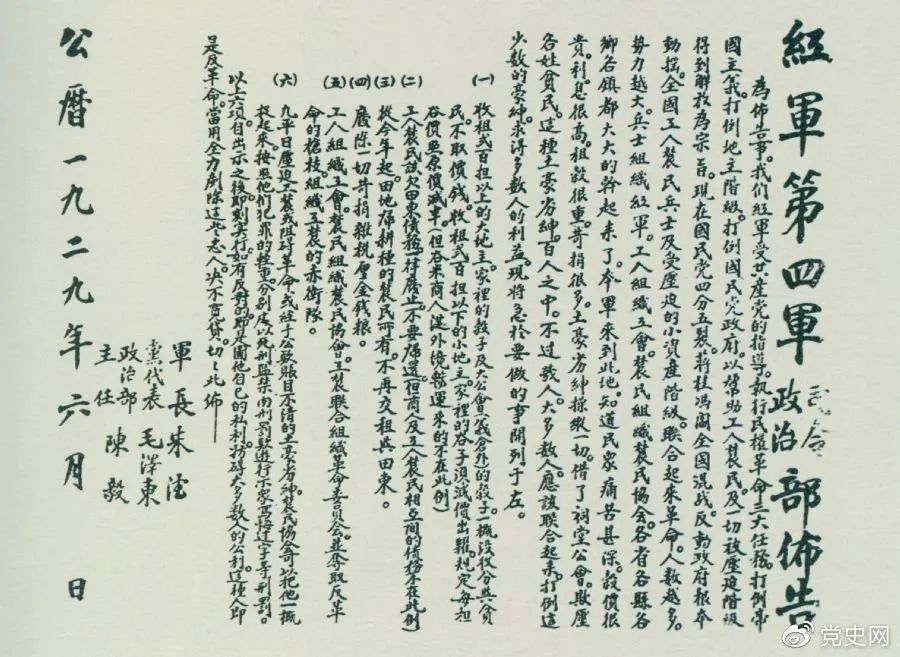 紅軍第四軍司令政治部佈告
為佈告事。我們紅軍受共產黨的指導。執行民權革命三大任務。打倒帝
國主義。打倒地主階級。打倒國民党政府。以幫助工人農民。及一切被壓迫階級
得到解放為宗旨。現在國民党四分五裂。蔣桂馮閻全國混战。反動政府根本
動搖。全國工人農民兵士及受壓迫的小資產階級。聯合起來革命。人數越多。
勢力越大。兵士組織紅軍。工人組織工會。農民組織農民協会。各省各縣各
鄉各鎮都大大的幹起來了。本軍來到此地。知道民眾痛苦甚深。穀價很
貴。利息很高。租穀很重。苛捐很多。土豪劣紳操縱一切。借了祠堂公會。欺壓
各姓貧民。這種土豪劣紳。百人之中。不过數人。大多數人。應該联合起來。打倒這
少数的豪紳。求得多数人的利益。現将急於要做的事開列于左。
(一)收租弍百担以上的大地主。家裡的穀子及大公會(義倉外)的穀子。一概没收分與貧
民。不取價钱。收租弍百担以下的小地主。家裡的谷子须減價出糶。規定每担
谷價照原價減半。(但谷米商人從外境辦運來的不在此例)
(二)工人農民該欠田東債務。一律廢止。不要歸還。(但商人及工人農民相互間的債務不在此例)
(三)從今年起。田地歸耕種的農民所有。不再交租與田東。
(四)廢除一切苛捐雜稅厘金錢粮。
(五)工人組織工會。農民組織農民協會。工農联合組織革命委員会。並奪取反革
命的槍枝。組織工農的赤衛隊。
(六)凡平日壓迫工農或阻碍革命。或經手公欵賬目不清的土豪劣紳。農民協會可以把他一概
捉起來。按照他們犯罪的輕重。分别處以死刑監禁肉刑罰欵遊行示家寫悔过字等刑罰。
以上六項。自出示之後。即刻实行。如有反對的。即是圖他自己的私利。妨碍大多数人的公利。這種人即
是反革命。當用全力剷除這些惡人。决不寬貸。切切此佈
軍長朱德
黨代表毛澤東
政治部主任陳毅
公曆一九二九年六月 日
党史网